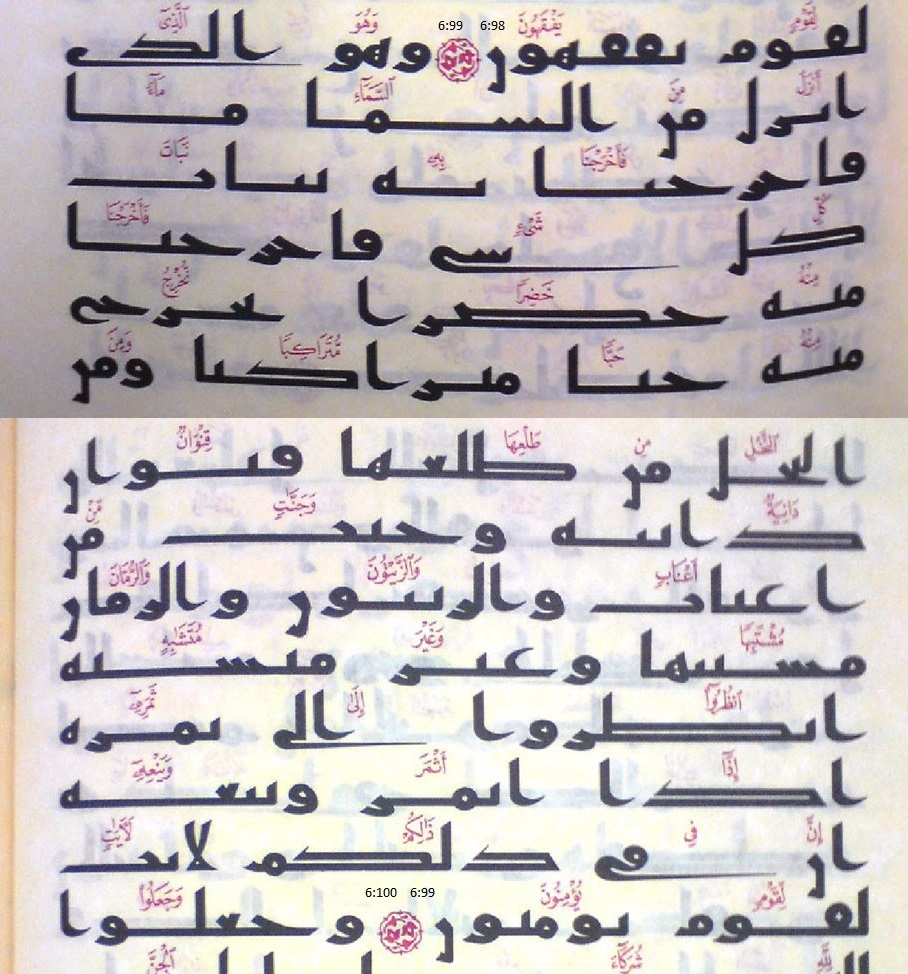 لِقَوْمٍ يَفْقَهُونَ 6:98 6:99 وَهُوَ ٱلَّذِىٓ
لقوم يفقهون وهو الذى
أَنزَلَ مِنَ ٱلسَّمَآءِ مَآءً
انزل من السما ما
فَأَخْرَجْنَا بِهِۦ نَبَاتَ
فاخرجنا به نبات
كُلِّ شَىْءٍ فَأَخْرَجْنَا
كل شى فاخرجنا
مِنْهُ خَضِرًا نُّخْرِجُ
منه خضرا نخرج
مِنْهُ حَبًّا مُّتَرَاكِبًا وَمِنَ
منه حبا متراكبا ومن
ٱلنَّخْلِ مِن طَلْعِهَا قِنْوَانٌ
النخل من طلعها قنوان
دَانِيَةٌ وَجَنَّٰتٍ مِّنْ
دانيه وجنت من
أَعْنَابٍ وَٱلزَّيْتُونَ وَٱلرُّمَّانَ
اعناب والزيتون والرمان
مُشْتَبِهًا وَغَيْرَ مُتَشَٰبِهٍ
مشتبها وغير متشبه
ٱنظُرُوٓا۟ إِلَىٰ ثَمَرِهِۦٓ
انظروا الى ثمره
إِذَآ أَثْمَرَ وَيَنْعِهِۦٓ
اذا اثمر وينعه
إِنَّ فِى ذَٰلِكُمْ لَءَايَٰتٍ
ان فى ذلكم لايت
لِّقَوْمٍ يُؤْمِنُونَ 6:99 6:100 وَجَعَلُوا۟
لقوم يومنون وجعلوا
لِلَّهِ شُرَكَآءَ ٱلْجِنَّ